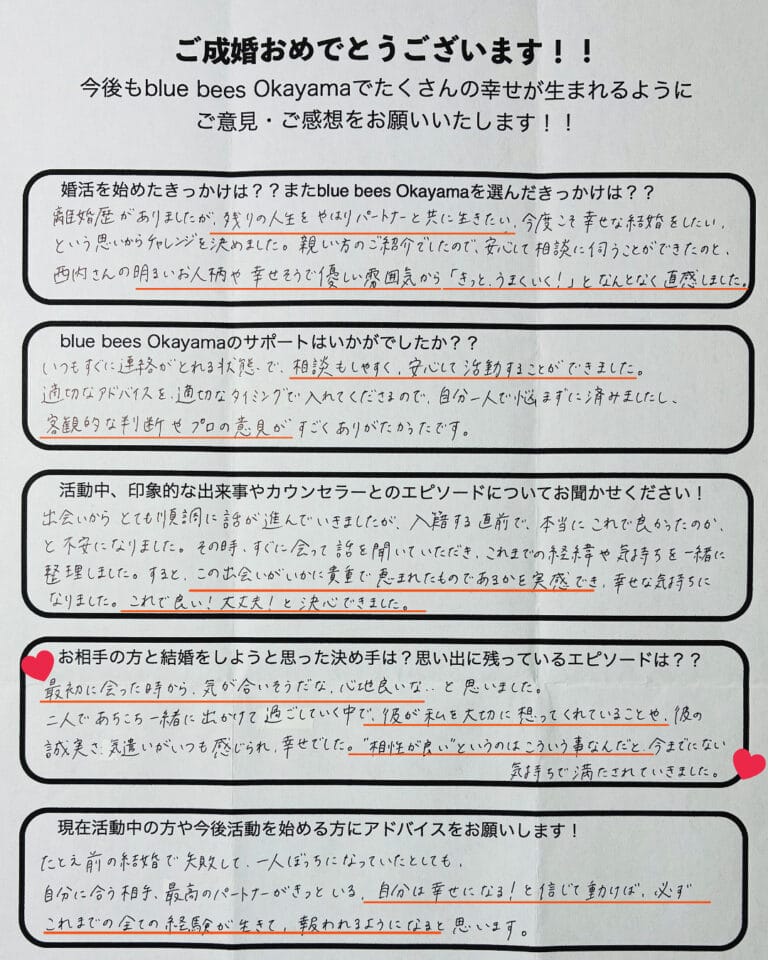 ご成婚おめでとうございます！！
今後もblue bees Okayamaでたくさんの幸せが生まれるように
ご意見・ご感想をお願いいたします！！
婚活を始めたきっかけは？？またblue bees Okayamaを選んだきっかけは？？
離婚歴がありましたが、残りの人生をやはりパートナーと共に生きたい、今度こそ幸せな結婚をしたい、
という思いからチャレンジを決めました。親しい方のご紹介でしたので、安心して相談に伺うことができたのと、
西内さんの明るいお人柄や幸せそうで優しい雰囲気から「きっと、うまくいく！」となんとなく直感しました。
blue bees Okayamaのサポートはいかがでしたか？？
いつもすぐに連絡がとれる状態で、相談もしやすく、安心して活動することができました。
適切なアドバイスを、適切なタイミングで入れてくださるので、自分一人で悩まずに済みましたし、
客観的な判断やプロの意見がすごくありがたかったです。
活動中、印象的な出来事やカウンセラーとのエピソードについてお聞かせください！
出会いからとても順調に話が進んでいきましたが、入籍する直前で、本当にこれで良かったのか、
と不安になりました。その時、すぐに会って話を聞いていただき、これまでの経緯や気持ちを一緒に
整理しました。すると、この出会いがいかに貴重で恵まれたものであるかを実感でき、幸せな気持ちに
なりました。これで良い！大丈夫！と決心できました。
お相手の方と結婚をしようと思った決め手は？思い出に残っているエピソードは？？
最初に会った時から、気が合いそうだな、心地良いな‥と思いました。
二人であちこち一緒に出かけて過ごしていく中で、彼が私を大切に想ってくれていることや、彼の
誠実さ、気遣いがいつも感じられ、幸せでした。"相性が良い"というのはこういう事なんだと、今までにない
気持ちで満たされていきました。
現在活動中の方や今後活動を始める方にアドバイスをお願いします！
たとえ前の結婚で失敗して、一人ぼっちになっていたとしても、
自分に合う相手、最高のパートナーがきっといる、自分は幸せになる！と信じて動けば、必ず
これまでの全ての経験が生きて、報われるようになると思います。